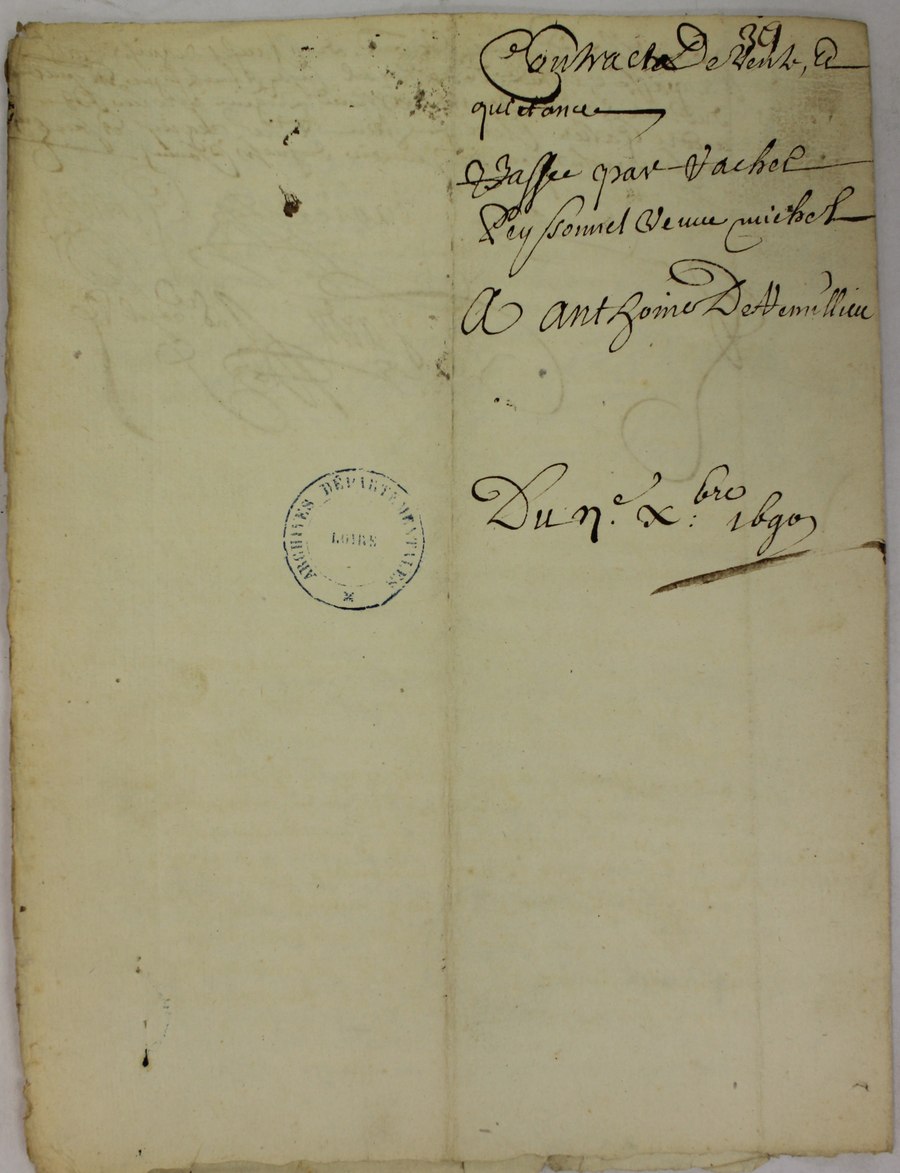 39
Contract De Vente, Et
quictance
Passe par Rachel
Peyssonnel Veuue michel
A anthoine De Remillieu
Du n.e x.bre 1690
ARCHIVES DÉPARTEMENTALES
LOIRE